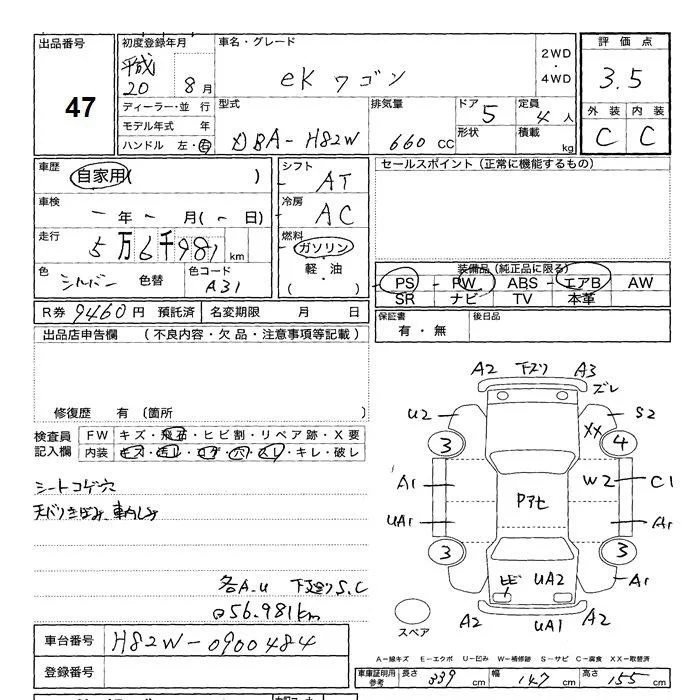 出品番号
47
初度登録年月
平成
20 8月
車名・グレード
eK ワゴン
2WD
・
4WD
評価点
3.5
外装 内装
C C
ディーラー・並行
モデル年式 年
ハンドル 左・右
型式
DBA-H82W
排気量
660 CC
ドア 5
形状
定員
4人
積載
kg
車歴
自家用( )
シフト
AT
セールスポイント(正常に機能するもの)
車検
-年-月(-日)
冷房
AC
走行
5万6千981km
燃料
ガソリン
軽・油
( )
色
シルバー 色替
色コード
A31
装備品(純正品に限る)
PS - PW - ABS - エアB - AW
SR ナビ TV 本革
R券 9460円 預託済 名変期限 月 日
保証書
有・無
後日品
出品店申告欄 (不良内容・欠品・注意事項等記載)
修復歴 有 (箇所 )
検査員
記入欄
FW キズ・飛石・ヒビ割・リペア跡・X要
内装 キズ・汚レ・コゲ・穴・スレ・キレ・破レ
シートコゲ穴
天バリきばみ、車内しみ
各A.U 下廻りS.C
56.981km
A2 下スリ A3
ズレ
U2 S2
3 XX 4
A1 W2 C1
Pアセ
UA1 A1
3 3
ヒビ UA2 A1
A2 UA1 A2
スペア
車台番号 H82W-0900484
登録番号
A−線キズ E−エクボ U−凹み W−補修跡 S−サビ C−腐食 XX−取替済
車庫証明用
参考
長さ 339 cm 幅 147 cm 高さ 155 cm